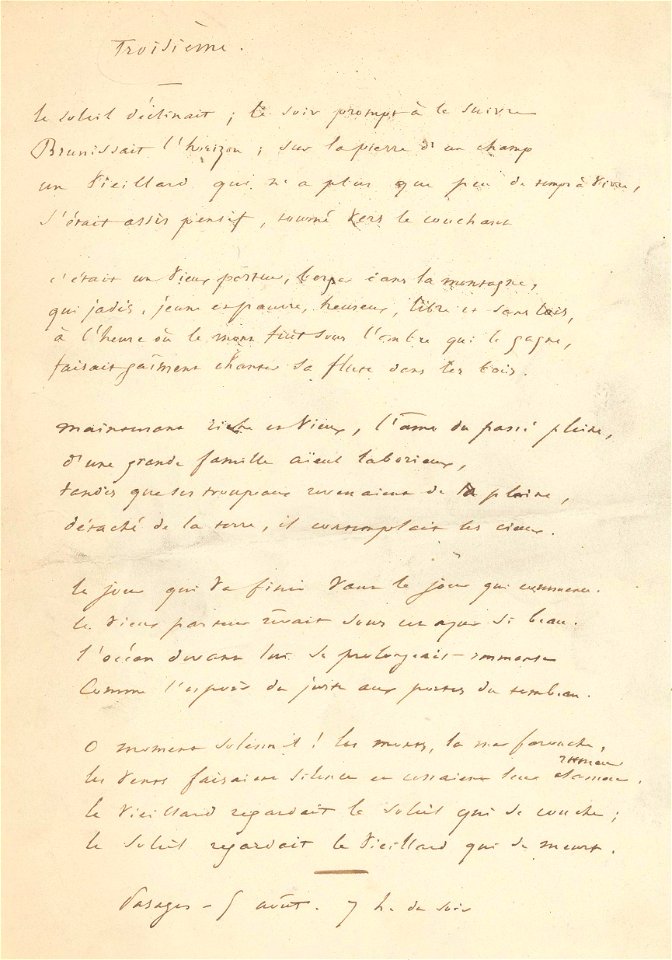 Troisième.
le soleil déclinait ; le soir prompt à le suivre
Brunissait l'horizon ; sur la pierre d'un champ
un vieillard qui n'a plus que peu de temps à vivre,
s'était assis pensif, tourné vers le couchant
c'était un vieux pasteur, berger dans la montagne,
qui jadis, jeune et pauvre, heureux, libre et sans lois,
à l'heure où le mont fuit sous l'ombre qui le gagne,
faisait gaîment chanter sa flute dans les bois.
maintenant riche et vieux, l'âme du passé pleine,
d'une grande famille aïeul laborieux,
tandis que ses troupeaux revenaient de la plaine,
détaché de la terre, il contemplait les cieux.
le jour qui va finir vaut le jour qui commence.
le vieux pasteur rêvait sous cet azur si beau.
l'océan devant lui se prolongeait immense
Comme l'espoir du juste aux portes du tombeau.
O moment solennel ! les monts, la mer farouche,
rumeur
les vents faisaient silence et cessaient leur clameur.
le vieillard regardait le soleil qui se couche ;
le soleil regardait le vieillard qui se meurt.
Pasages - 5 août. 7 h. du soir